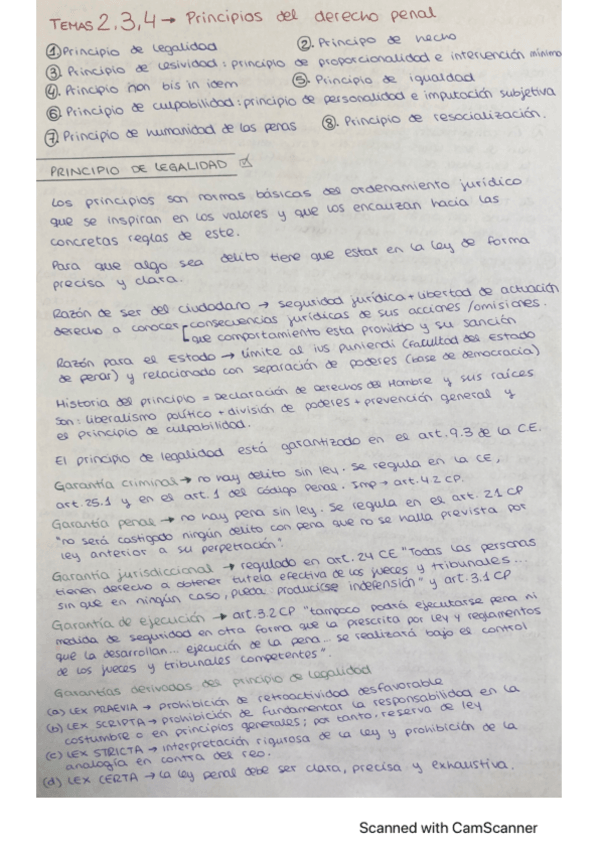 TEMAS 2, 3, 4 → Principios del derecho penal
① Principio de legalidad ②. Principo de hecho
③. Principio de lesividad: principio de proporcionalidad e intervención mínima
④. Principio non bis in idem ⑤. Principio de igualdad
⑥. Principio de culpabilidad: principio de personalidad e imputación subjetiva
⑦. Principio de humanidad de las penas ⑧. Principio de resocialización.
PRINCIPIO DE LEGALIDAD
Los principios son normas básicas del ordenamiento jurídico
que se inspiran en los valores y que los encauzan hacia las
concretas reglas de este.
Para que algo sea delito tiene que estar en la ley de forma
precisa y clara.
Razón de ser del ciudadano → seguridad jurídica + libertad de actuación
derecho a conocer [consecuencias jurídicas de sus acciones/omisiones.
que comportamiento esta prohibido y su sanción
Razón para el Estado → límite al ius puniendi (facultad del estado
de penar) y relacionado con separación de poderes (base de democracia)
Historia del principio = Declaración de Derechos del Hombre y sus raíces
son: liberalismo político + división de poderes + prevención general y
el principio de culpabilidad.
El principio de legalidad está garantizado en el art. 9.3 de la CE.
Garantía criminal → no hay delito sin ley. Se regula en la CE,
art. 25.1 y en el art. 1 del código penal. Imp → art. 4.2 CP.
Garantía penal → no hay pena sin ley. Se regula en el art. 2.1 CP
"no será castigado ningún delito con pena que no se halla prevista por
ley anterior a su perpetración".
Garantía jurisdiccional → regulado en art. 24 CE "Todas las personas
tienen derecho a obtener tutela efectiva de los jueces y tribunales...
sin que en ningún caso, pueda producirse indefensión" y art. 3.1 CP
Garantía de ejecución → art. 3.2 CP "tampoco podrá ejecutarse pena ni
medida de seguridad en otra forma que la prescrita por ley y reglamentos
que la desarrollan... ejecución de la pena... se realizará bajo el control
de los jueces y tribunales competentes".
Garantías derivadas del principio de legalidad
(a) LEX PRAEVIA → prohibición de retroactividad desfavorable
(b) LEX SCRIPTA → prohibición de fundamentar la responsabilidad en la
costumbre o en principios generales; por tanto, reserva de ley
(c) LEX STRICTA → interpretación rigurosa de la ley y prohibición de la
analogía en contra del reo.
(d) LEX CERTA → la ley penal debe ser clara, precisa y exhaustiva.
Scanned with CamScanner